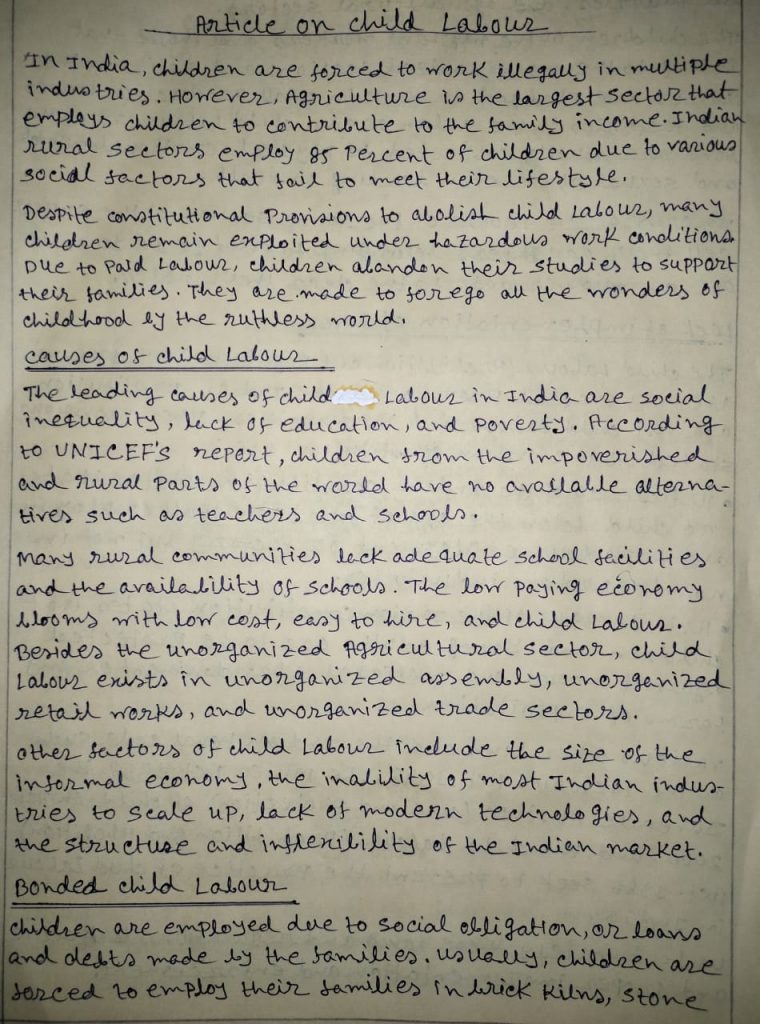 Article on child Labour
In India, children are forced to work illegally in multiple
industries. However, Agriculture is the largest Sector that
employs children to contribute to the family income. Indian
rural Sectors employ 85 Percent of children due to various
social factors that fail to meet their lifestyle.
Despite constitutional Provisions to abolish child Labour, many
children remain exploited under hazardous work conditions.
Due to Paid Labour, children abandon their studies to support
their families. They are made to forego all the wonders of
childhood by the ruthless world.
causes of child Labour
The leading causes of child Labour in India are social
inequality, lack of education, and poverty. According
to UNICEF'S report, children from the impoverished
and rural Parts of the world have no available alterna-
tives such as teachers and schools.
Many rural communities lack adequate school facilities
and the availability of schools. The low paying economy
blooms with low cost, easy to hire, and child Labour.
Besides the unorganized Agricultural sector, child
Labour exists in unorganized assembly, unorganized
retail works, and unorganized trade sectors.
other factors of child Labour include the size of the
informal economy, the inability of most Indian indus-
tries to scale up, lack of modern technologies, and
the structure and inflexibility of the Indian market.
Bonded child Labour
children are employed due to social obligation, or loans
and debts made by the families. usually, children are
forced to employ their families in brick kilns, stone